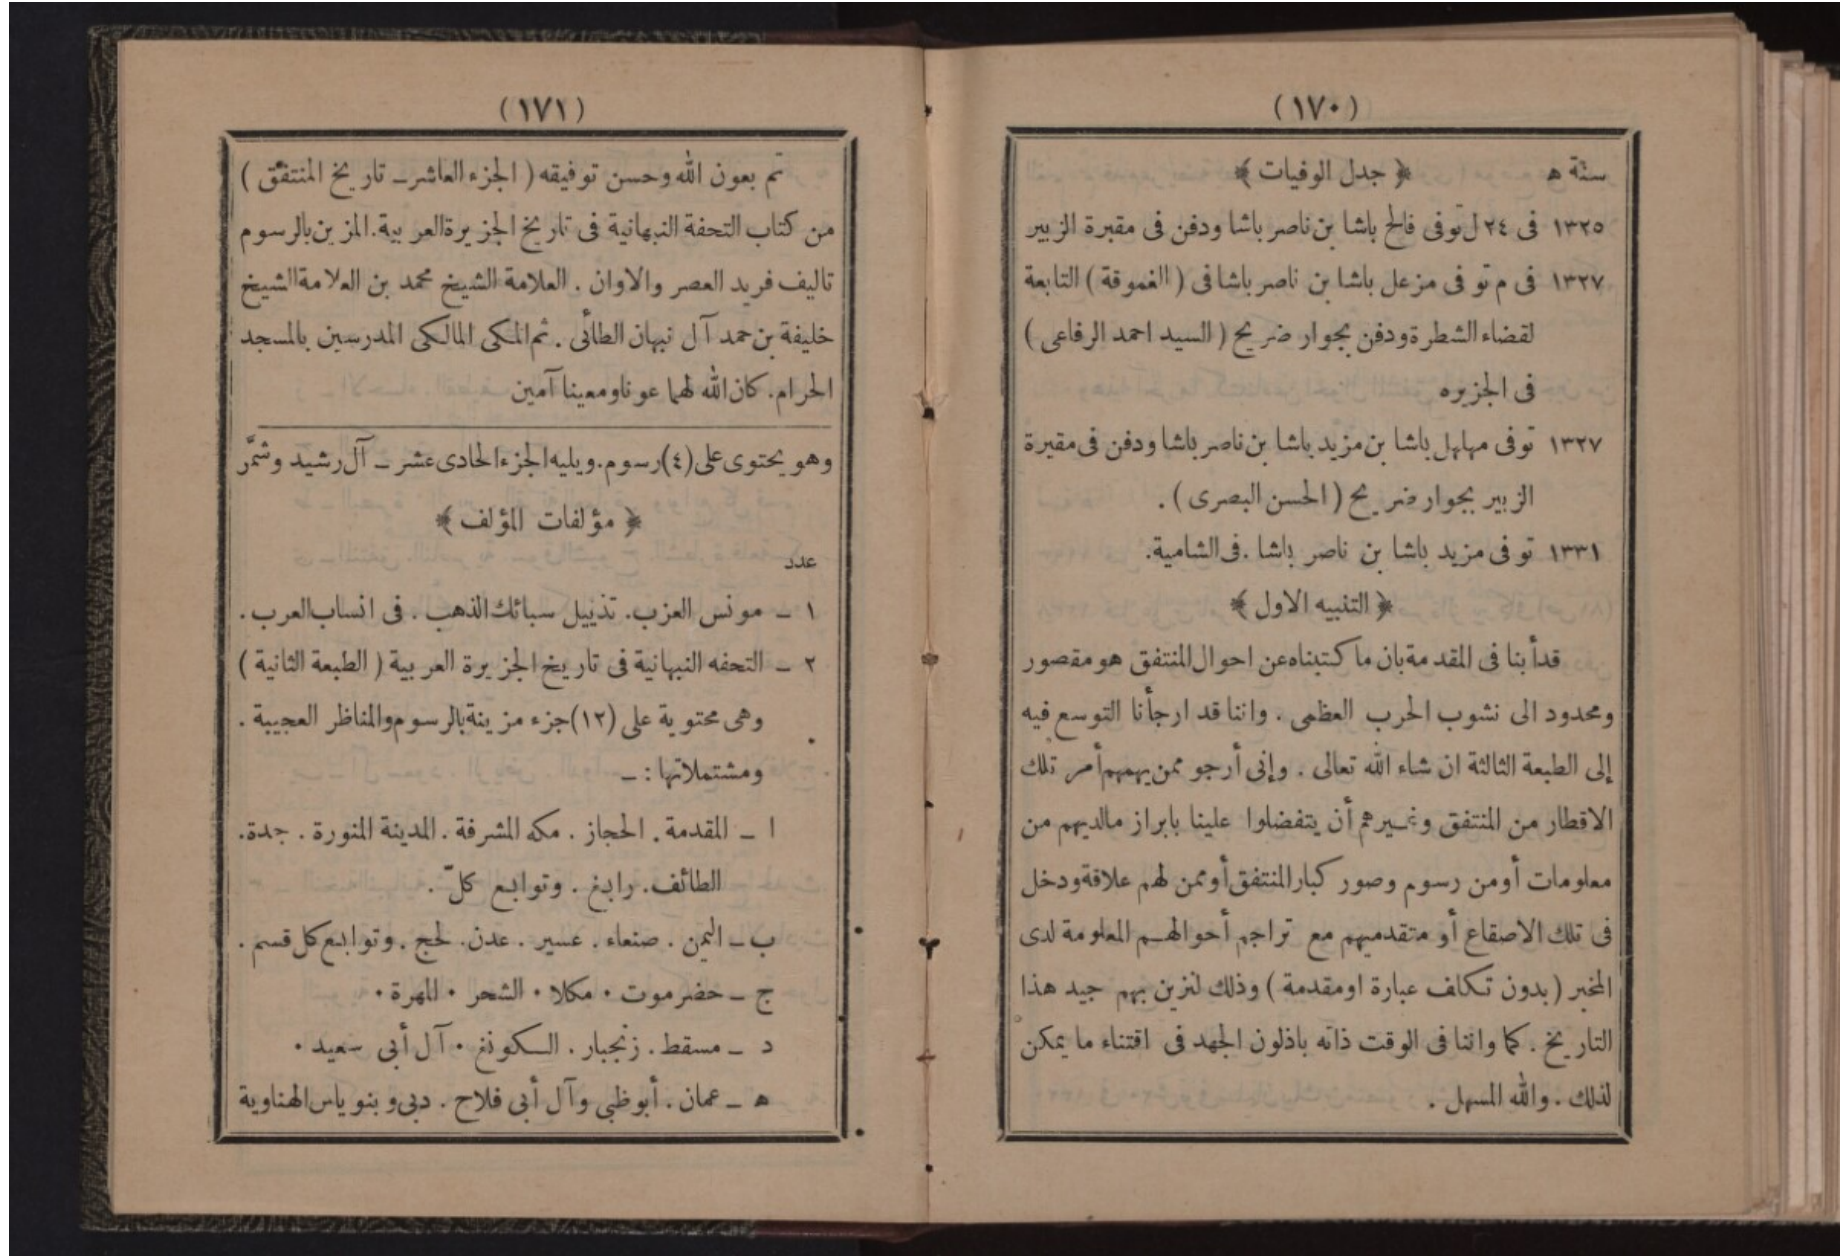 (١٧٠)
سنة ه ﴿ جدل الوفيات ﴾
١٣٢٥ فى ٢٤ ل توفى فالح باشا بن ناصر باشا ودفن فى مقبرة الزبير
١٣٢٧ فى م توفى مزعل باشا بن ناصر باشا فى ( الغموقة ) التابعة
لقضاء الشطرة ودفن بجوار ضريح ( السيد احمد الرفاعى )
فى الجزيره
١٣٢٧ توفى مهلهل باشا بن مزيد باشا بن ناصر باشا ودفن فى مقبرة
الزبير بجوار ضريح ( الحسن البصرى ) .
١٣٣١ توفى مزيد باشا بن ناصر باشا . فى الشامية.
﴿ التنبيه الاول ﴾
قد أبنا فى المقدمة بان ما كتبناه عن احوال المنتفق هو مقصور
ومحدود الى نشوب الحرب العظمى . واننا قد ارجأنا التوسع فيه
إلى الطبعة الثالثة ان شاء الله تعالى . وإنى أرجو ممن يهمهم أمر تلك
الاقطار من المنتفق وغيرهم أن يتفضلوا علينا بابراز مالديهم من
معلومات أو من رسوم وصور كبار المنتفق أو ممن لهم علاقة ودخل
فى تلك الاصقاع أو متقدميهم مع تراجم أحوالهم المعلومة لدى
المخبر ( بدون تكلف عبارة او مقدمة ) وذلك لنزين بهم جيد هذا
التاريخ . كما واننا فى الوقت ذاته باذلون الجهد فى اقتناء ما يمكن
لذلك . والله المسهل .
(١٧١)
تم بعون الله وحسن توفيقه ( الجزء العاشر ـ تاريخ المنتفق )
من كتاب التحفة النبهانية فى تاريخ الجزيرة العربية. المزين بالرسوم
تاليف فريد العصر والاوان . العلامة الشيخ محمد بن العلامة الشيخ
خليفة بن حمد آل نبهان الطائى . ثم المكى المالكى المدرسين بالمسجد
الحرام. كان الله لهما عونا ومعينا آمين
وهو يحتوى على (٤) رسوم. ويليه الجزء الحادى عشر ـ آل رشيد وشمَّر
﴿ مؤلفات المؤلف ﴾
عدد
١ ـ مونس العزب. تذييل سبائك الذهب . فى انساب العرب .
٢ ـ التحفه النبهانية فى تاريخ الجزيرة العربية ( الطبعة الثانية )
وهى محتوية على (١٢) جزء مزينة بالرسوم والمناظر العجيبة .
ومشتملاتها : ـ
ا ـ المقدمة . الحجاز . مكه المشرفة . المدينة المنورة . جدة.
الطائف. رابغ . وتوابع كلّ .
ب ـ اليمن . صنعاء . عسير . عدن. لحج . وتوابع كل قسم .
ج ـ حضرموت . مكلا . الشحر . المهرة .
د ـ مسقط . زنجبار . السكونغ . آل أبى سعيد .
ه ـ عمان . أبو ظبي وآل أبى فلاح . دبى وبنو ياس الهناوية